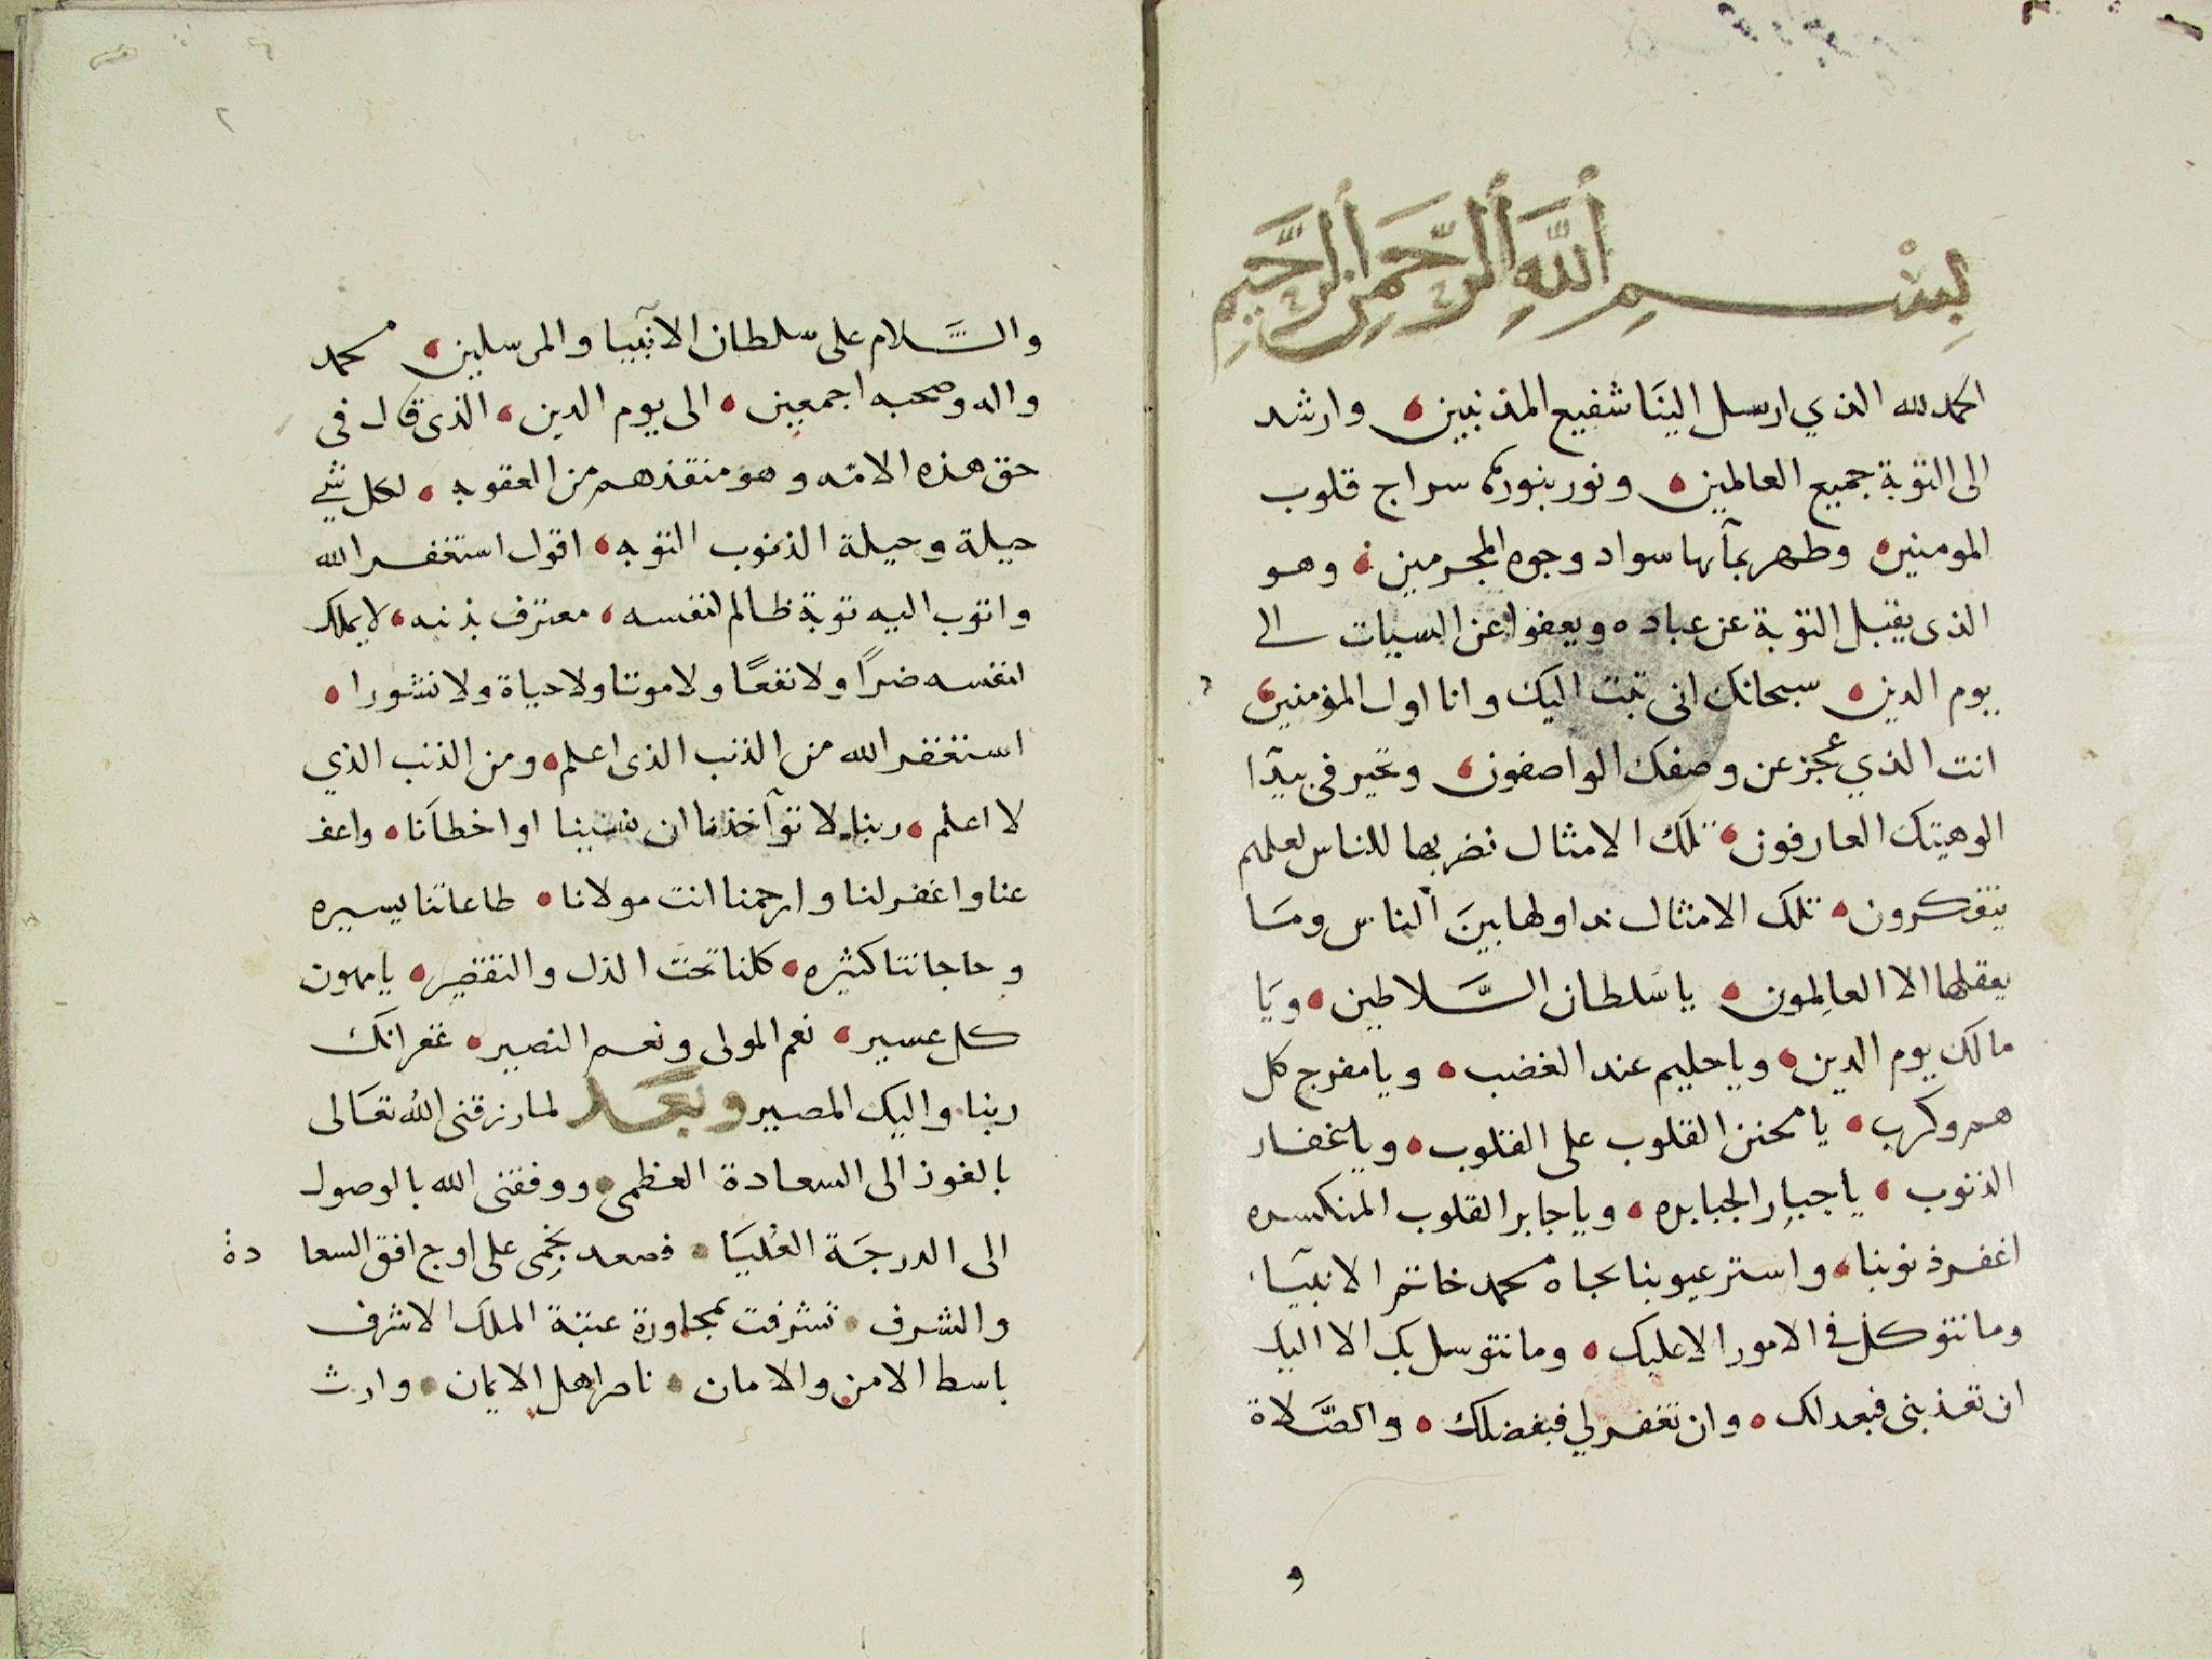 بِسْمِ ٱللَّهِ ٱلرَّحْمَنِ ٱلرَّحِيمِ
الحمد لله الذي ارسل الينَا شفيع المذنبين وارشد
الى التوبة جميع العالمين ونور بنورها سراج قلوب
المومنين وطهر بمآئها سواد وجوه المجرمين وهو
الذى يقبل التوبة عن عباده ويعفوا عن السيات الى
يوم الدين سبحانك انى تبت اليك وانا اول المؤمنين
انت الذي عجز عن وصفك الواصفون وتحير فى بيدآ
الوهيتك العارفون تلك الامثال نضربها للناس لعلهم
يتفكرون تلك الامثال نداولها بينَ الناس ومَا
يعقلها الا العالِمون يا سَلطان السَّلاطين ويَا
مالك يوم الدين ويا حليم عند الغضب ويا مفرج كل
هم وكرب يا محنن القلوب على القلوب ويا غفار
الذنوب يا جبار الجبابره ويا جابر القلوب المنكسره
اغفر ذنوبنا واستر عيوبنا بجاه محمد خاتم الانبيَآء
وما نتوكل فى الامور الا عليك وما نتوسل بك الا اليك
ان تعذبنى فبعدلك وان تغفر لي فبفضلك والصَّلاة
و
٢
والسَّلام على سلطان الانبيا والمرسلين محمد
واله وصحبه اجمعين الى يوم الدين الذى قال فى
حق هذه الامّه وهو منقذهم من العقوبه لكل شي
حيلة وحيلة الذنوب التوبه اقول استغفر الله
واتوب اليه توبة ظالم لنفسه معترف بذنبه لا يملك
لنفسه ضرًا ولا نفعًا ولا موتا ولا حياة ولا نشورا
استغفر الله من الذنب الذى اعلم ومن الذنب الذي
لا اعلم ربنا لا تؤآخذنا ان نسينا او اخطأنا واعف
عنا واغفر لنا وارحمنا انت مولانا طاعاتنا يسيره
وحاجاتنا كثيره كلنا تحت الذل والتقصير يا مهون
كل عسير نعم المولى ونعم النصير غفرانك
ربنا واليك المصير وبَعَد لما رزقنى الله تعَالى
بالفوز الى السعادة العظمى ووفقنى الله بالوصول
الى الدرجَة العُليَا فصعد نجمِى على اوج افق السعا دة
والشرف تشرفت بمجاورة عتبة الملك الاشرف
باسط الامن والامان ناصر اهل الايمان وارث